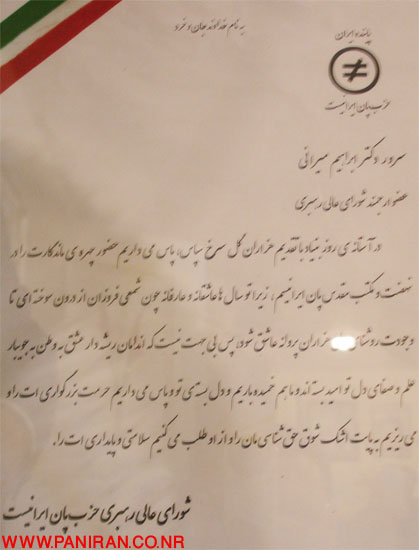 به نام خداوند جان و خرد
پاینده ایران
حزب پان ایرانیست
سرور دکتر ابراهیم میرانی
عضو ارجمند شورای عالی رهبری
در آستانه ی روز بنیاد با تقدیم هزاران گل سرخ سپاس، پاس می داریم حضور چهره ی ماندگارت را در
نهضت و مکتب مقدس پان ایرانیسم، زیرا تو سال ها عاشقانه و عارفانه چون شمعی فروزان از درون سوخته ای تا
وجودت روشنای هزاران پروانه عاشق شود، پس بی جهت نیست که اندامان ریشه دار عشق به وطن به جویبار
علم و صفای دل تو امید بسته اند و ما هم خمیده باریم و دل بسته ی تو و پاس می داریم حرمت بزرگواری ات را و
می ریزیم به پایت اشک شوق حق شناسی مان را و از او طلب می کنیم سلامتی و پایداری ات را.
شورای عالی رهبری حزب پان ایرانیست
WWW.PANIRAN.CO.NR